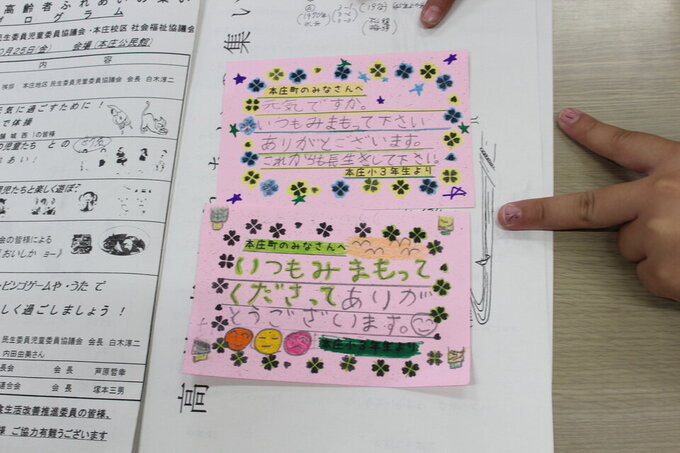 高齢者ふれあいの集い
プログラム
民生委員児童委員協議会・本庄校区 社会福祉協議会
月25日(金) 会場(本庄公民館)
内容
挨拶 本庄地区 民生委員児童委員協議会 会長 白木淳二
元気に過ごすために!
で体操
の児童たち との
あい!
児童たちと楽しく遊ぼ?
会の皆様による
ビンゴゲームや・うた で
しく過ごしましょう!
民生委員児童委員協議会 会長 白木淳二
内田由美さん
会長 芦原哲幸
連合会 会長 塚本三男
食生活改善推進委員の皆様、
様 ご協力有難うございます
集い
高
本庄町のみなさんへ
元気ですか。
いつもみまもって下さい
ありがとございます。
これからも長生きをして下さい。
本庄小3年生より
本庄町のみなさんへ
いつもみまもって
くださってありが
とうございます。
本庄小3年生より